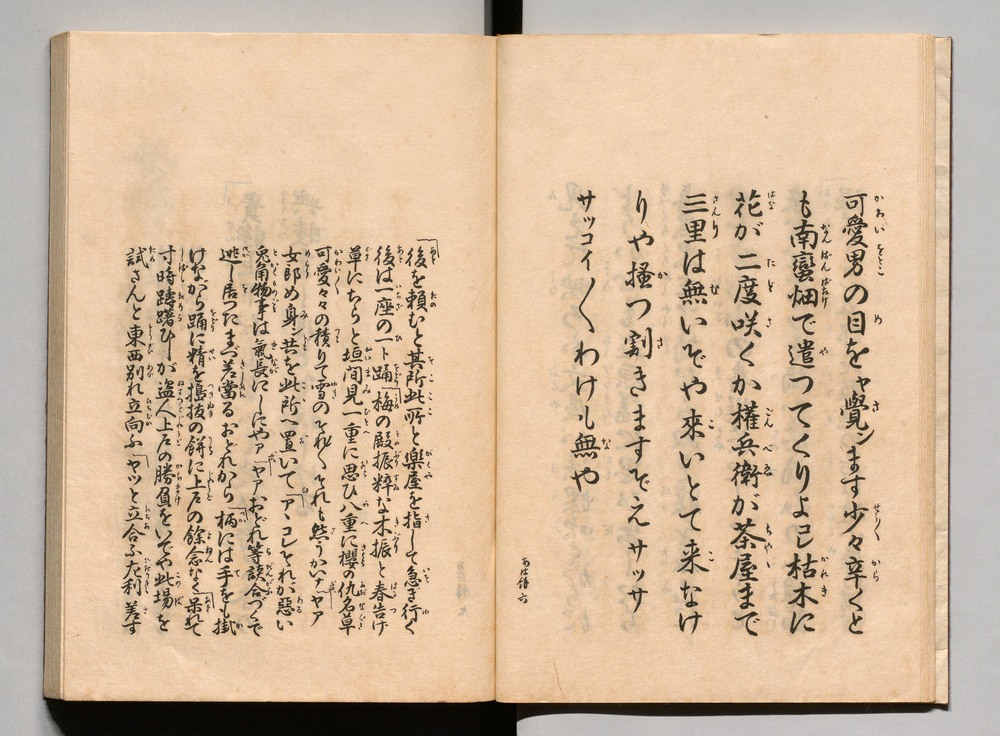 可愛男の目をャ覺ンます少々辛くと
も南蠻畑で遣つてくりよコレ枯木に
花が二度咲くか權兵衛が茶屋まで
三里は無いぞや來いとて来なけ
りや搔つ割きますぞえサッサ
サッコイ〳〵わけも無や
あは餅 六
後を頼むと其所此所と樂屋を指して急ぎ行く
後は一座の一ト踊梅の殿振粹な木振と春告げ
草にちらと垣間見一重に思ひ八重に櫻の仇名草
可愛々々の積りて雪のそれ〳〵それも然うかいナヤア
女郎め身ン共を此所へ置いてアヽコレそれが惡い
兎角物事は氣長にしにやアヤアおどれ等談合づくで
逃し居つたまづ差當るおどれから柄には手をも掛
けながら踊に精を搗抜の餅に上戸の餘念なく呆れて
寸時躊躇ひしが盗人上戸の勝負をいでや此場を
試さんと東西別れ立向ふヤッと立合ふ左利 差す